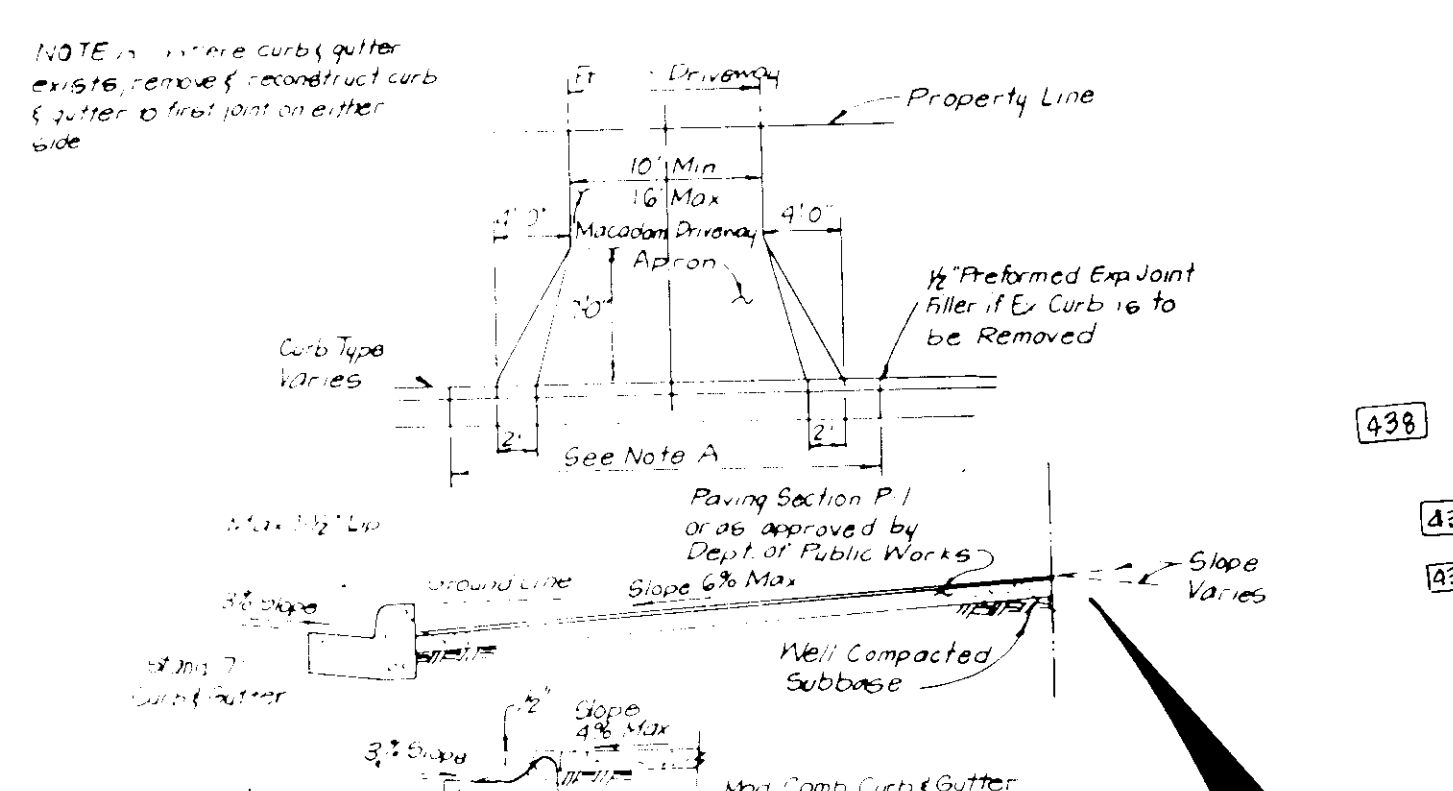 NOTE curb & gutter
exists, remove & reconstruct curb
& gutter to first joint on either
side
Driveway
Property Line
10' Min
16' Max
4'0"
4'0"
Macadam Driveway
Apron
1/2" Preformed Exp Joint
Filler if Ex Curb is to
be Removed
Curb Type
Varies
2'
2'
See Note A
438
Paving Section P-1
or as approved by
Dept. of Public Works
Max 1-1/2" Lip
Slope
Varies
Ground Line
Slope 6% Max
3% Slope
Well Compacted
Subbase
Curb & Gutter
1/2"
Slope
4% Max
3% Slope
Mod Comb Curb & Gutter